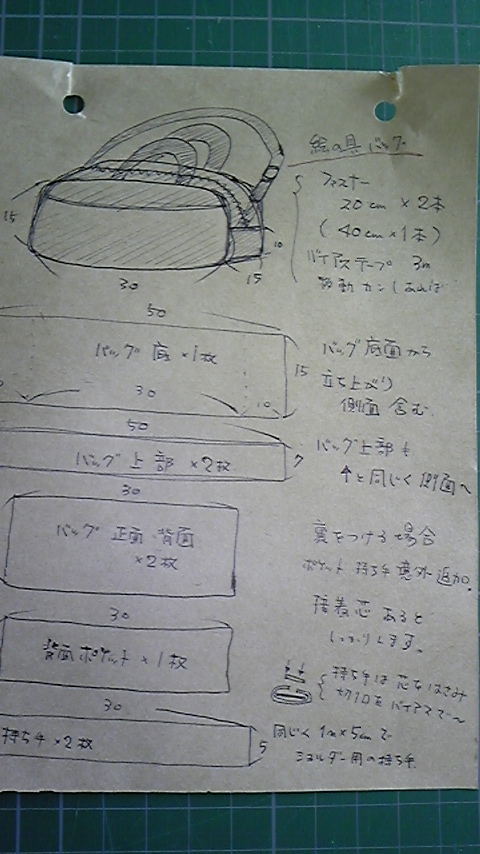 絵の具バッグ
ファスナー
20cm × 2本
(40cm × 1本)
バイアステープ 3m
移動カン(あれば
15
30
15
10
50
バッグ 底 × 1枚
30
10
15
バッグ底面から
立ち上がり
側面 含む.
50
バッグ 上部 × 2枚
7
バッグ上部も
↑と同じく側面へ
30
バッグ 正面 背面
× 2枚
裏をつける場合
ポケット 持ち手意外追加.
接着芯 あると
しっかりします。
30
背面ポケット × 1枚
持ち手は芯をはさみ
切り口をバイアスで〜
30
持ち手 × 2枚
5
同じく 1m×5cmで
ショルダー用の持ち手